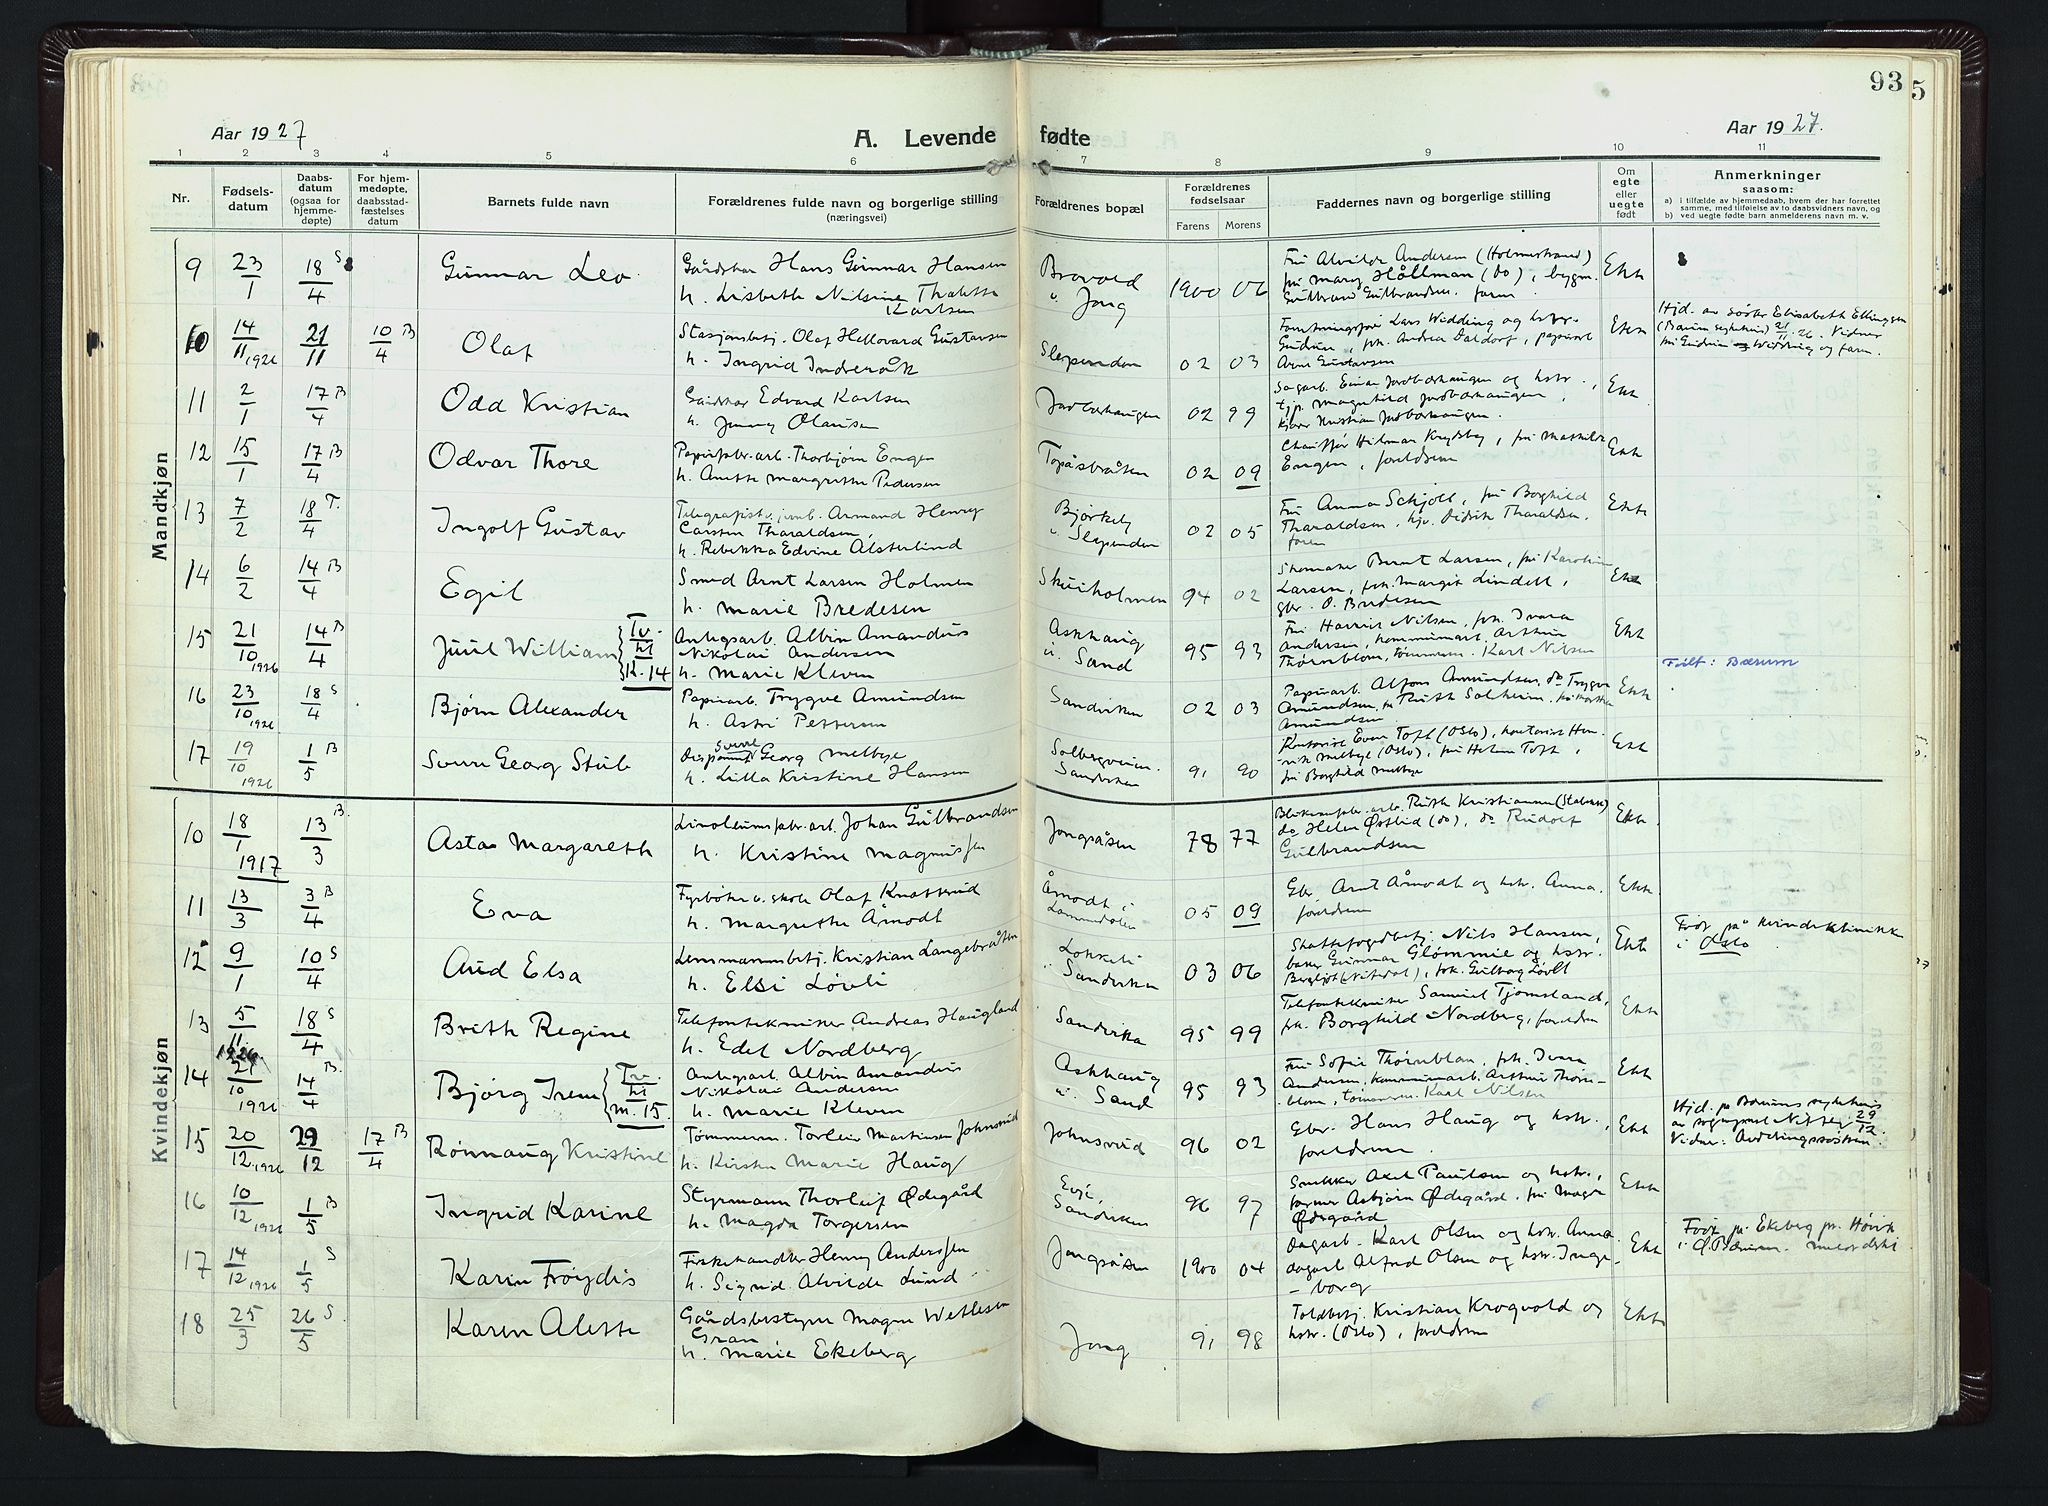 93
5
Aar 1927
A. Levende fødte
Aar 1927.
1 2 3 4 5 6 7 8 9 10 11
Nr.
Fødsels-
datum
Daabs-
datum
(ogsaa for
hjemme-
døpte)
For hjem-
medøpte,
daabsstad-
fæstelses
datum
Barnets fulde navn
Forældrenes fulde navn og borgerlige stilling
(næringsvei)
Forældrenes bopæl
Forældrenes
fødselsaar
Farens Morens
Faddernes navn og borgerlige stilling
Om
egte
eller
uegte
født
Anmerkninger
saasom:
a) i tilfælde av hjemmedaab, hvem der har forrettet
samme, med tilføielse av to daabsvidners navn, og
b) ved uegte fødte barn anmelderens navn m. v.
Mandkjøn
9 23/1 18/4 S Gunnar Leo
Hans Gunnar Hansen
h. Lisbeth Nilsine
Karlsen
Brovold
v. Jong
1900 06
Fru Alvilde Andersen (Holmestrand)
Ekte
10 14/11 1926 21/11 10/4 B Olaf
Stasjonsbetj. Olaf Hellovard Gustavsen
h. Ingrid Inderåk
Slependen
02 03
Arne Gustavsen
Ekte
Hjd. av søster Elisabeth Ellingsen
(Bærum sykehus) 21/11 26. Vidner
fru Gudrun Widding og faren.
11 2/1 17/4 B Odd Kristian
Edvard Karlsen
h. Jenny Olausen
Jordbærhaugen
02 99
Ekte
12 15/1 17/4 B Odvar Thore
Papirfabr.arb. Thorbjørn Engen
h. Anette Margrethe Pedersen
Topåsbråten
02 09
Engen, foreldrene
Ekte
13 7/2 18/4 T. Ingolf Gustav
Telegrafist v. jernb. Armand Henry
Carsten Tharaldsen,
h. Rebekka Edvine Alsterlind
Bjørkely
v. Slependen
02 05
Fru Anna Schjøll, fru Borghild
Tharaldsen, Didrik Tharaldsen,
faren
Ekte
14 6/2 14/4 B Egil
Smed Arnt Larsen Holmen
h. Marie Bredesen
Skuiholmen
94 02
Skomaker Bernt Larsen, fru Karoline
Larsen, frk. Margit Lindell,
gbr. O. Bredesen
Ekte
15 21/10 1926 14/4 B Juul William { Tv. til K. 14
Anlegsarb. Albin Amandus
Nikolai Andersen
h. Marie Kleven
Askhaug
v. Sand
95 93
Fru Harriet Nilsen, frk. Ivara
Andersen, kommunearb. Arthur
Thørnblom, tømmerm. Karl Nilsen
Ekte
16 23/10 1926 18/4 S Bjørn Alexander
Papirarb. Trygve Amundsen
h. Astri Pettersen
Sandviken
02 03
Papirarb. Alfons Amundsen, do Trygve
Amundsen, fr. Ruth Solheim, fru Martha
Amundsen
Ekte
Født: Bærum
17 19/10 1926 1/5 B Sverre Georg Stub
Disponent Sverre Georg Melbye
h. Lilla Kristine Hansen
Solbergveien.
Sandviken
91 90
Kontorist Even Toft (Oslo), kontorist Hen-
rik Melbye (Oslo), fru Helen Toft,
fru Borghild Melbye
Ekte
Kvindekjøn
10 18/1 1917 13/3 B. Asta Margareth
Linoleumsfabr.arb. Johan Gulbrandsen
h. Kristine Magnussen
Jongsåsen
78 77
do Helen Østlid (do), do Rudolf
Gulbrandsen
Ekte
11 13/3 3/4 B Eva
Fyrbøter v. skole Olaf Knatterud
h. Margrethe Åmodt
Åmodt i
Lommedalen
05 09
Gbr. Arnt Åmodt og hstr. Anna.
foreldrene
Ekte
12 9/1 10/4 S Aud Elsa
Lensmannsbetj. Kristian Langebråten
h. Elsi Løvli
Løkkeli
v. Sandviken
03 06
Skattefogedbetj. Nils Hansen,
baker Gunnar Glømmie og hstr.
Bergljot (Nitedal), frk. Gulborg Løvli
Ekte
Født på kvindeklinikken
i Oslo
13 5/11 1926 18/4 S Brith Regine
Telefontekniker Andreas Haugland
h. Edel Nordberg
Sandvika
95 99
Telefontekniker Samuel Tjomsland,
frk. Borghild Nordberg, foreldrene
Ekte
14 21/10 1926 14/4 B. Bjørg Irene { Tv. til M. 15
Anlegsarb. Albin Amandus
Nikolai Andersen
h. Marie Kleven
Askhaug
v. Sand
95 93
Fru Sofie Thørnblom, frk. Ivara
Andersen, kommunearb. Arthur Thørn-
blom, tømmerm. Karl Nilsen
Ekte
15 20/12 1926 29/12 17/4 B Rønnaug Kristine
Tømmerm. Torleiv Martinsen Johnsrud
h. Kirsten Marie Haug
Johnsrud
96 02
Gbr. Hans Haug og hstr.,
foreldrene.
Ekte
Hjd. på Bærums sykehus
29/12
16 10/12 1926 1/5 B Ingrid Karine
Styrmann Thorleif Ødegård
h. Magda Torgersen
Evje,
Sandviken
96 97
Snekker Axel Paulsen og hstr.,
former Asbjørn Ødegård. fru Magda
Ødegård
Ekte
17 14/12 1926 1/5 S Karin Frøydis
Fiskehandler Henry Anderssen
h. Sigrid Alvilde Lund
Jongsåsen
1900 04
Dagarb. Karl Olsen og hstr. Anna.
dagarb. Alfred Olsen og hstr. Inge-
borg
Ekte
Født på Ekeberg pr. Høvik
i Ø. Bærum.
18 25/3 26/5 S Karen Alette
Gårdsbestyrer Magne Wetlesen
Gran
h. Marie Ekeberg
Jong
91 98
Toldbetj. Kristian Krogvold og
hstr. (Oslo), foreldrene
Ekte